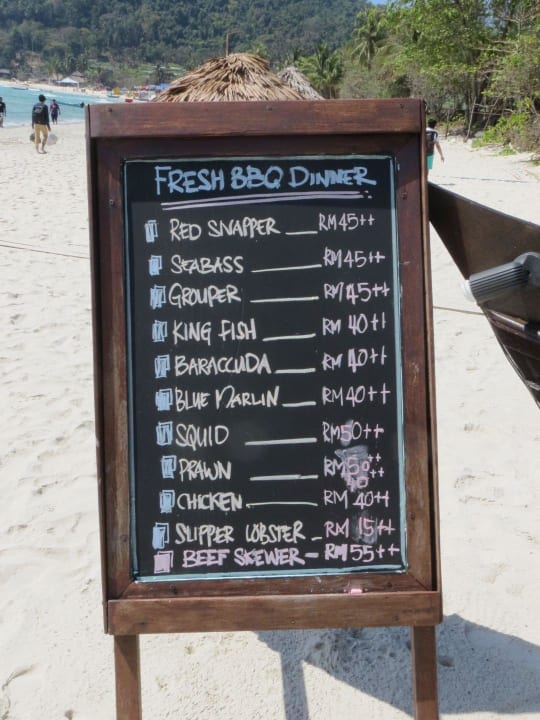 FRESH BBQ DINNER
RED SNAPPER RM45++
SEABASS RM45++
GROUPER RM45++
KING FISH RM 40++
BARACCUDA RM 40++
BLUE MARLIN RM40++
SQUID RM50++
PRAWN RM50++
CHICKEN RM 40++
SLIPPER LOBSTER RM 15++
BEEF SKEWER RM 55++